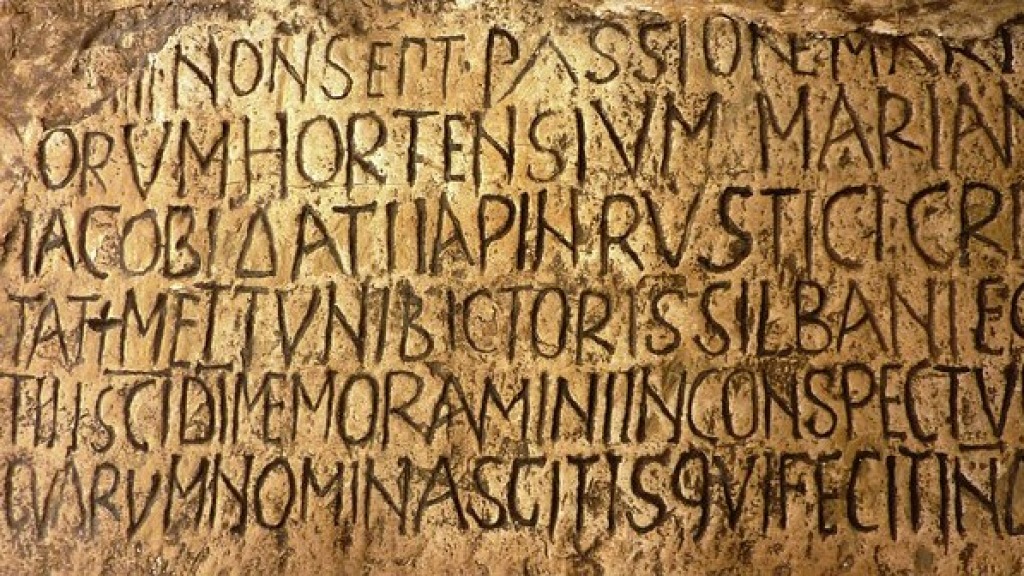 IIII NON SEPT · PASSIONE MART
ORVM HORTENSIVM MARIAN
IACOBI DATI IAPIN RVSTICI CRI
TAT + METTVNI BICTORIS SILBANI EG
TII SCI DI MEMORAMINI IN CONSPECTV
QVARVM NOMINA SCITIS QVI FECIT IND